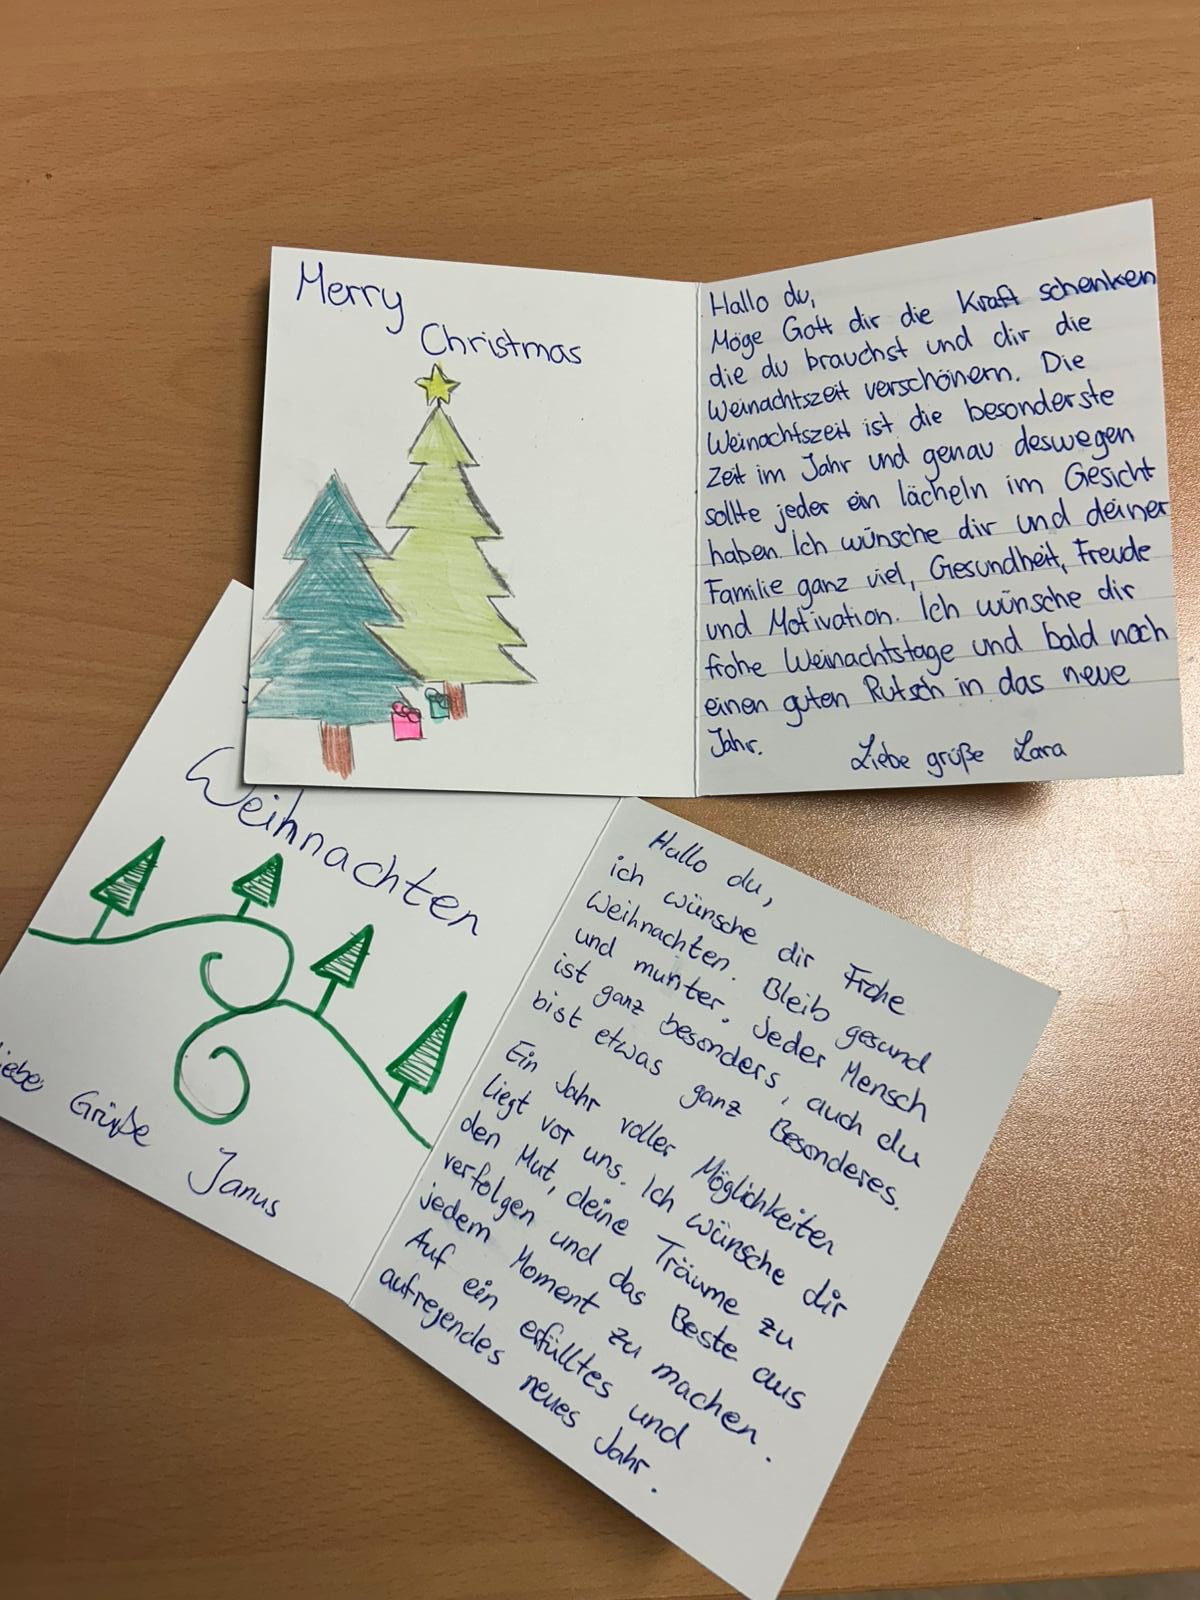 Merry
Christmas
Hallo du,
Möge Gott dir die Kraft schenken
die du brauchst und dir die
Weinachtszeit verschönern. Die
Weinachtszeit ist die besonderste
Zeit im Jahr und genau deswegen
sollte jeder ein lächeln im Gesicht
haben. Ich wünsche dir und deiner
Familie ganz viel, Gesundheit, Freude
und Motivation. Ich wünsche dir
frohe Weinachtstage und bald noch
einen guten Rutsch in das neue
Jahr.
Liebe grüße Lara
Weihnachten
Grüße
Janus
Hallo du,
ich wünsche dir Frohe
Weihnachten. Bleib gesund
und munter. Jeder Mensch
ist ganz besonders, auch du
bist etwas ganz Besonderes.
Ein Jahr voller Möglichkeiten
liegt vor uns. Ich wünsche dir
den Mut, deine Träume zu
verfolgen und das Beste aus
jedem Moment zu machen.
Auf ein erfülltes und
aufregendes neues Jahr.